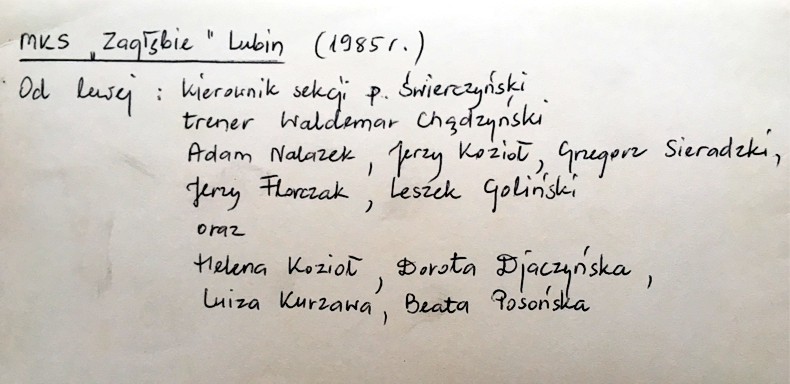 MKS „Zagłębie" Lubin (1985 r.)
Od lewej : kierownik sekcji p. Świerczyński
trener Waldemar Chądzyński
Adam Nalazek, Jerzy Kozioł, Grzegorz Sieradzki,
Jerzy Florczak, Leszek Goliński
oraz
Helena Kozioł, Dorota Djaczyńska,
Luiza Kurzawa, Beata Posońska